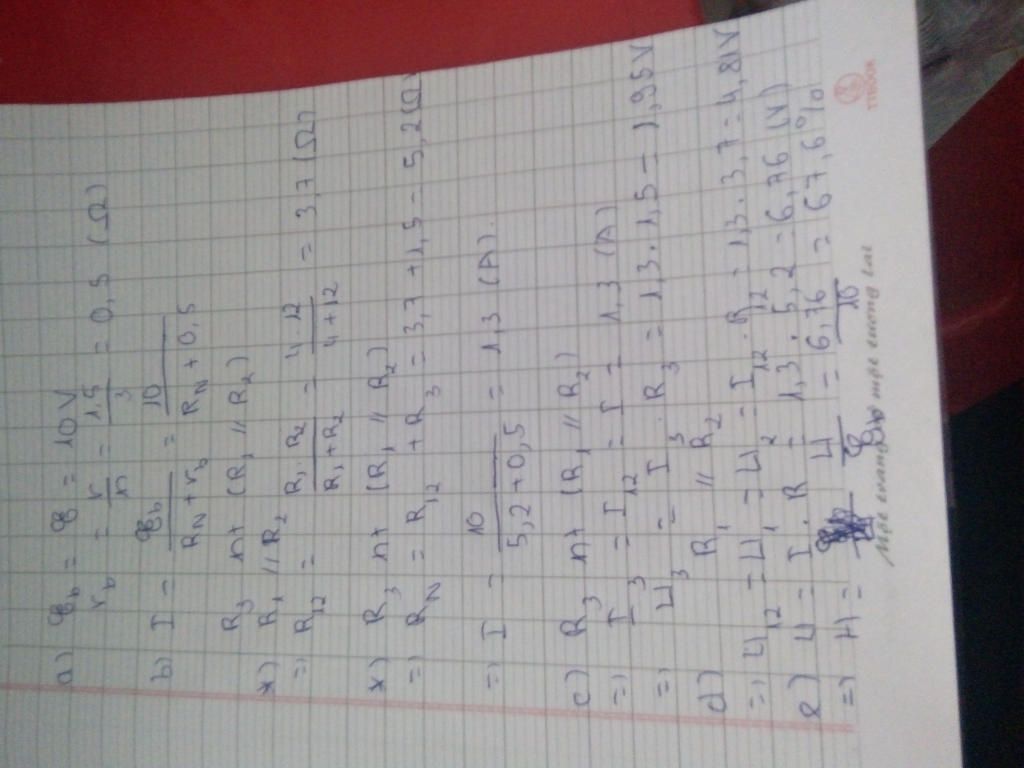 a) ℰb = ℰ = 10V
rb = r/n = 1,5/3 = 0,5 (Ω)
b) I = ℰb/(RN + rb) = 10/(RN + 0,5)
R3 nt (R1 // R2)
*) R1 // R2
=> R12 = R1.R2/(R1 + R2) = 4.12/(4 + 12) = 3,7 (Ω)
*) R3 nt (R1 // R2)
=> RN = R12 + R3 = 3,7 + 1,5 = 5,2 (Ω
=> I = 10/(5,2 + 0,5) = 1,3 (A).
c) R3 nt (R1 // R2)
=> I3 = I12 = I = 1,3 (A)
=> U3 = I3 . R3 = 1,3 . 1,5 = 1,95V
d) R1 // R2
=> U12 = U1 = U2 = I12 . R12 = 1,3 . 3,7 = 4,81V
e) U = I . R = 1,3 . 5,2 = 6,76 (V)
=> H = U/ℰb = 6,76/10 = 67,6%
TTBOOK